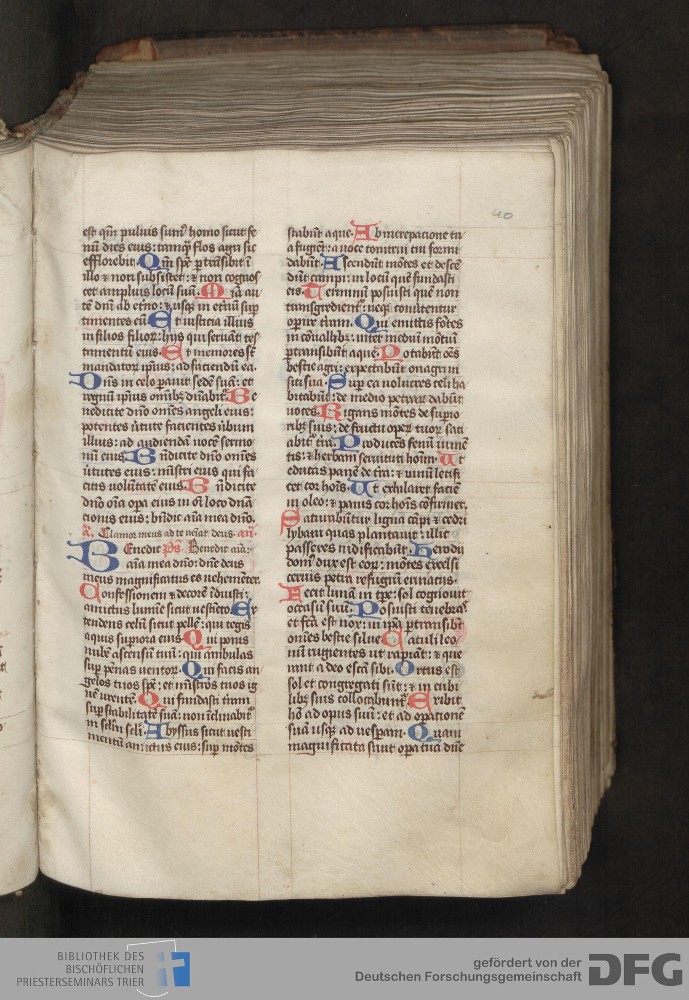 40
est qm̄ puluis sum᷒ homo sicut fe
nū dies eius: tamq̄ flos agri sic
efflorebit. Qm̄ spē ꝑtrāsibit ī
illo ⁊ non subsistet: ⁊ non cognos
cet amplius locū suū. Mīa au
tē dn̄i ab etn̄o: ⁊ usqȝ in etn̄ū suꝑ
timentes eū. Et iusticia illius
in filios filioꝝ: hijs qui seruāt tes
tamentū eius. Et memores sūt
mandatoꝝ ip̄ius: ad faciendū ea.
Dn̄s in celo ꝑauit sedē suā: et
regnū ip̄ius om̄ibȝ dn̄abit᷒. Be
nedicite dn̄o om̄es angeli eius:
potentes ūtute facientes ūbum
illius: ad audiendā uocē sermo
nū eius. Bn̄dicite dn̄o om̄es
ūtutes eius: mīstri eius qui fa
citis uolūtatē eius. Bn̄dicite
dn̄o oīa opa eius in oī loco dn̄a
cionis eius: bn̄dic aīa mea dn̄o.
Clamor meus ad te ueīat deus. añ.
Benedic. Ps. Benedic aīa:
aīa mea dn̄o: dn̄e deus
meus magnificatus es uehemēter.
Confessionem ⁊ decorē īduisti:
amictus lumīe sicut uestimēto. Ex
tendens celū sicut pellē: qui tegis
aquis suꝑiora eius. Qui ponis
nubē ascensū tuū: qui ambulas
suꝑ pēnas uentoꝝ. Qui facis an
gelos tuos spē: et mīstros tuos ig
nē urentē. Qui fundasti trām
suꝑ stabilitatē suā: non īclinabit᷒
in sclm̄ scli. Abyssus sicut uesti
mentū amictus eius: suꝑ mōtes
stabūt aque. Ab increpacione tu
a fugiēt: a uoce tonitrui tui formi
dabūt. Ascendūt mōtes et descē
dūt campi: in locū quē fundasti
eis. Terminū posuisti quē non
transgredient᷒: neqȝ conūtentur
oꝑire trām. Qui emittis fōtes
in cōuallibȝ: inter mediū mōtiū
ꝑtransibūt aque. Potabūt oēs
bestie agri: expectabūt onagri in
siti sua. Suꝑ ea uolucres celi ha
bitabūt: de medio petraꝝ dabūt
uoces. Rigans mōtes de suꝑio
ribȝ suis: de fructu oꝑeꝝ tuoꝝ sati
abit᷒ tr̄a. Producēs fenū iumē
tis: ⁊ herbam seruituti hoīm. Ut
educas panē de tr̄a: ⁊ uinū letifi
cet cor hoīs. Ut exhilaret faciē
in oleo: ⁊ panis cor hoīs cōfirmet.
Saturabūtur ligna cāpi ⁊ cedri
lybani quas plantauit: illic
passeres nidificabūt. Herodii
dom᷒ dux est eoꝝ: mōtes excelsi
ceruis petra refugiū erinatiis.
Fecit lunā in tꝑe: sol cognouit
occasū suū. Posuisti tenebras
et fc̄a est nox: in ip̄a ꝑtransibūt
om̄es bestie silue. Catuli leo
nū rugientes ut rapiāt: ⁊ que
rant a deo escā sibi. Ortus est
sol et congregati sūt: ⁊ in cubi
libȝ suis collocabunt᷒. Exibit
hō ad opus suū: et ad oꝑationē
suā usqȝ ad uesꝑam. Quam
magnificata sunt oꝑa tua dn̄e
BIBLIOTHEK DES
BISCHÖFLICHEN
PRIESTERSEMINARS TRIER
gefördert von der
Deutschen Forschungsgemeinschaft
DFG